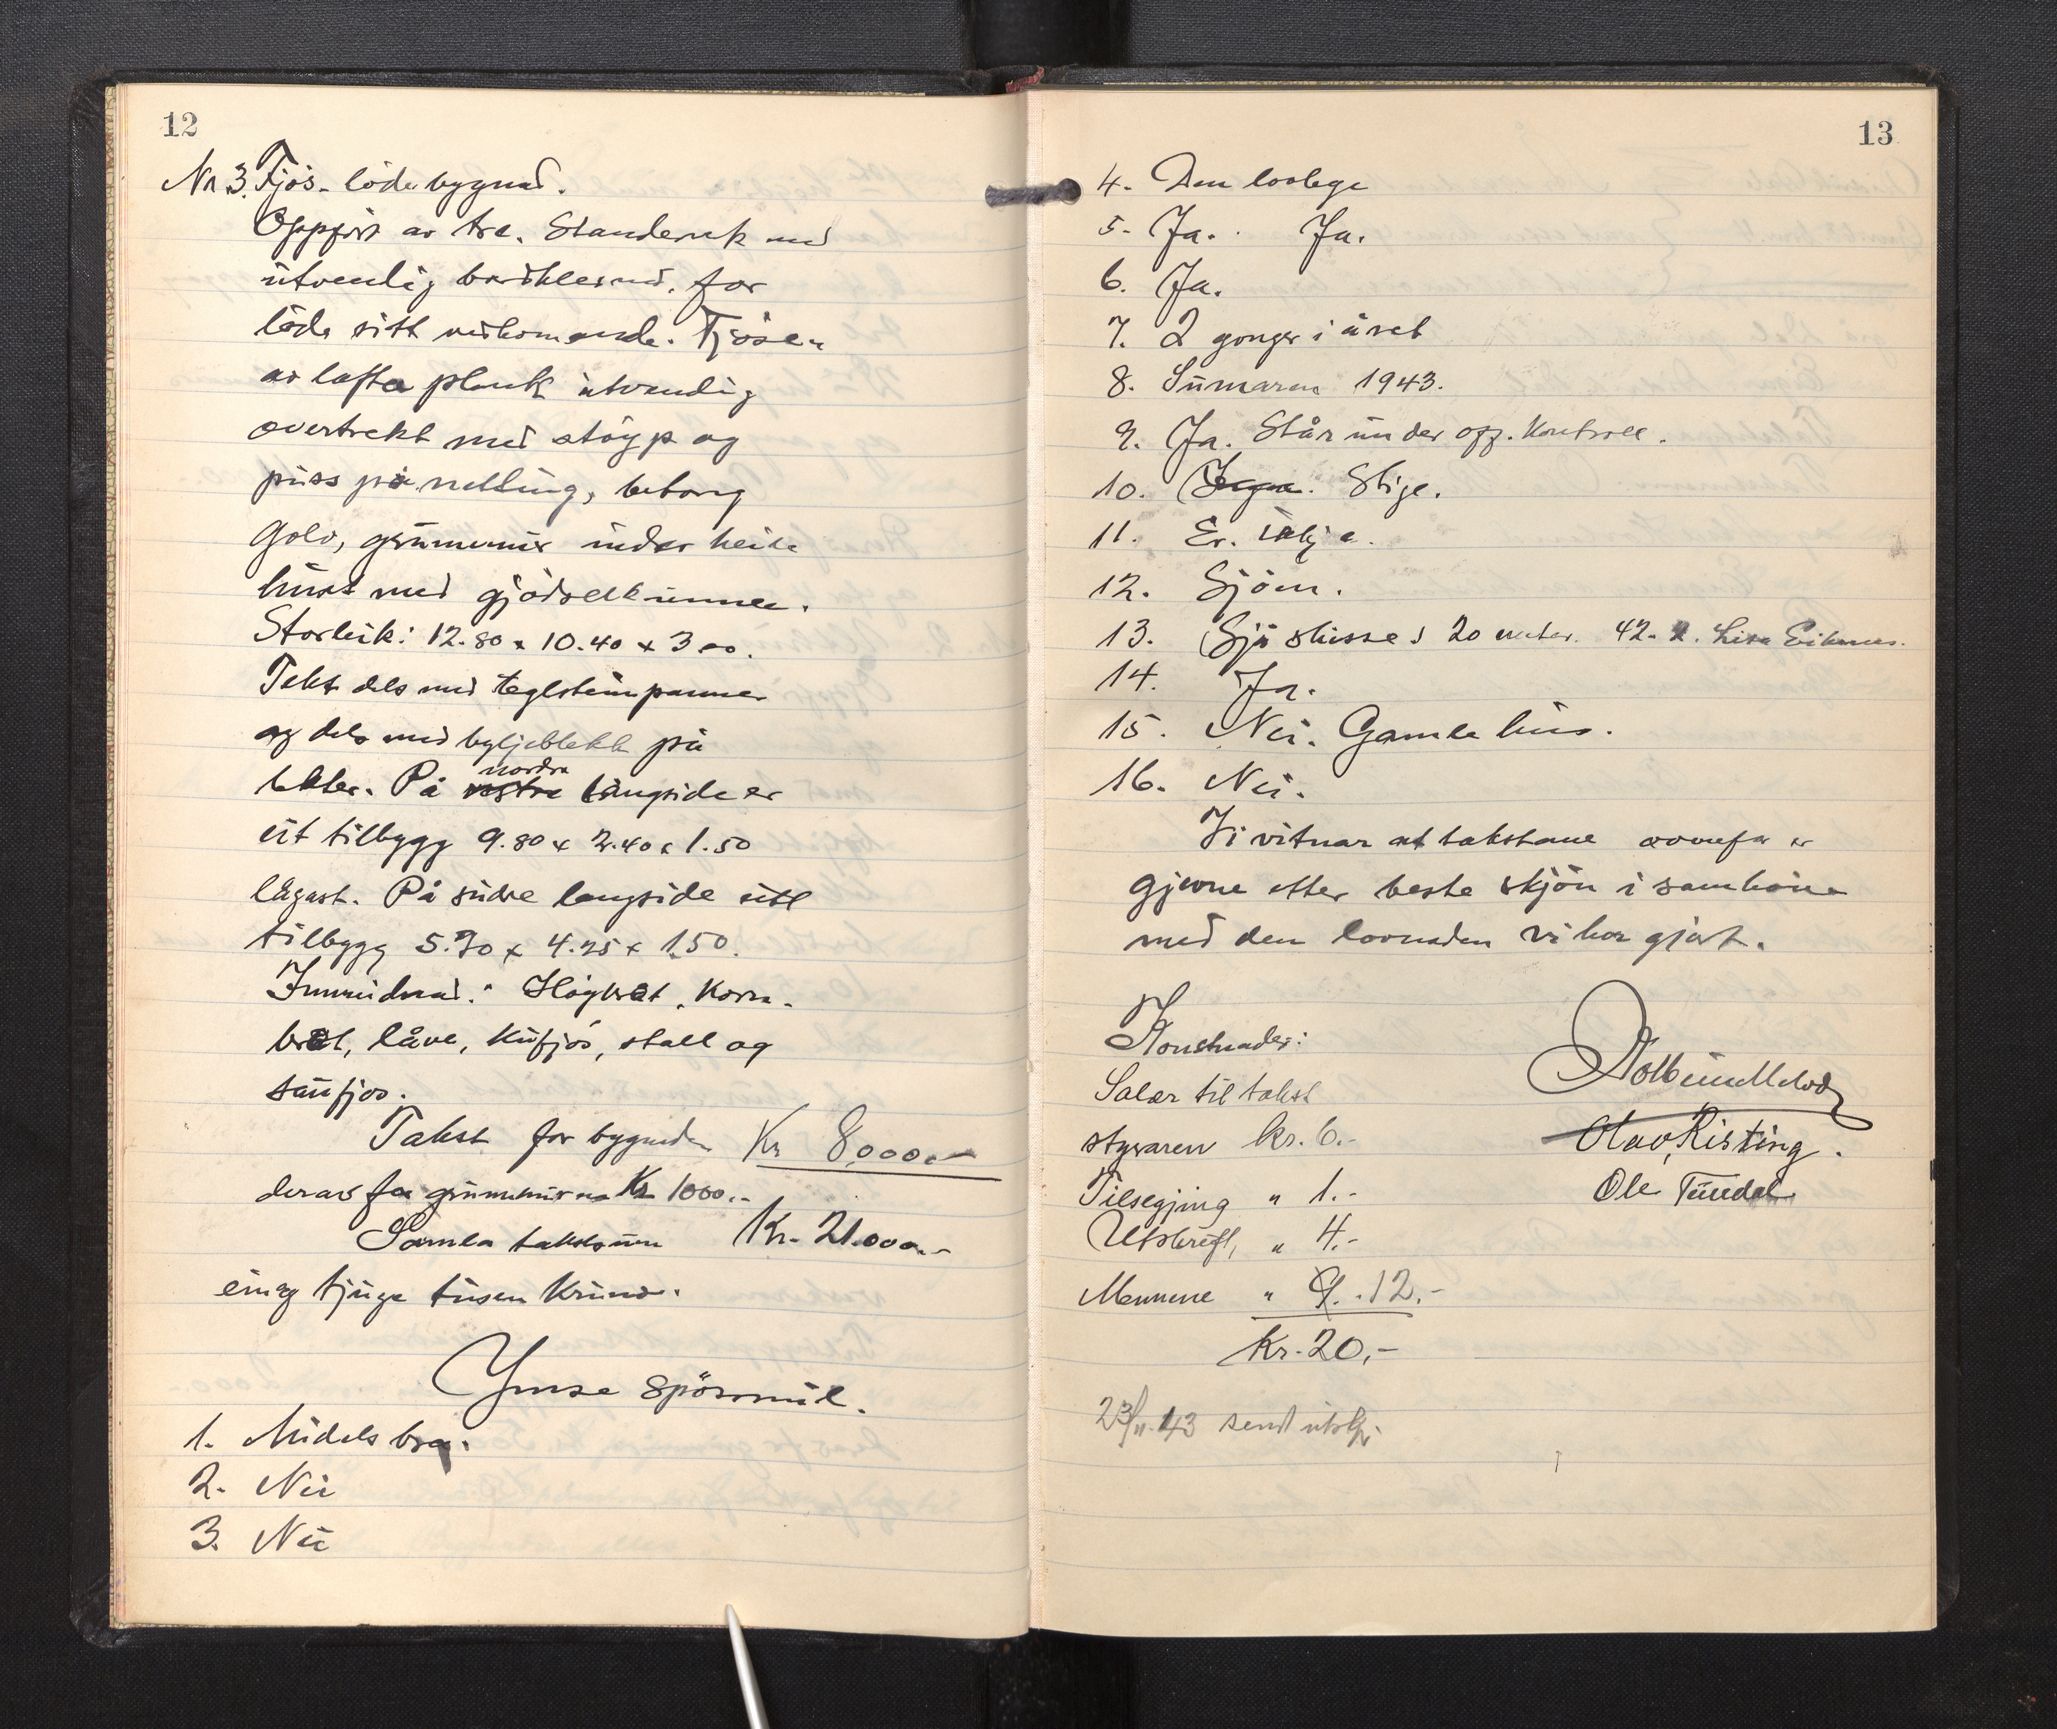 12
Nr 3. Fjös- löde bygnad.
Oppfört av tre. Standerverk med
utvendig bordklednad, for
löde sitt vedkomande. Fjösen
av lafta plank utvendig
overtrekt med stöyp og
puss på netting, betong
Golv, grunnmur under heile
huset med gjödselkummer.
Storleik: 12.80 x 10.40 x 3.00.
Tekt dels med teglsteinpanner
og dels med bylgjeblekk på
lekter. På vestre nordre langside er
eit tilbygg 9.80 x 2.40 x 1.50
lägast. På sudre langside eitt
tilbygg 5.70 x 4.25 x 1.50.
Innreidnad: Höybrot, Korn-
brot, låve, Kufjös, stall og
saufjos.
Takst for bygnaden Kr 8,000.-
derav for grunnmurna Kr 1000.-
Samla takstsum Kr. 21.000.-
ein og tjuge tusen Kruno.
Ymse spörsmål.
1. Midels bra.
2. Nei
3. Nei
13
4. Den lovlege
5. Ja. Ja.
6. Ja.
7. 2 gonger i året
8. Sumaren 1943.
9. Ja. Står under off. Kontroll.
10. Stige.
11. Er. ikkje.
12. Sjöen.
13. Sjå skisse 20 meter. 42. 2. Lisa Eiknes.
14. Ja.
15. Nei. Gamle hus.
16. Nei.
Vi vitnar at takstane ovanfor er
gjevne etter beste skjön i samhöve
med den lovnaden vi har gjort.
Konstnader:
Salær til takst
styraren kr. 6.-
Tilsegjing " 1.-
Utskrift, " 4.-
Mennene " 9.. 12.-
Kr. 20.-
Olav Risting.
Ole Tundal
23/11.43 send utskr.